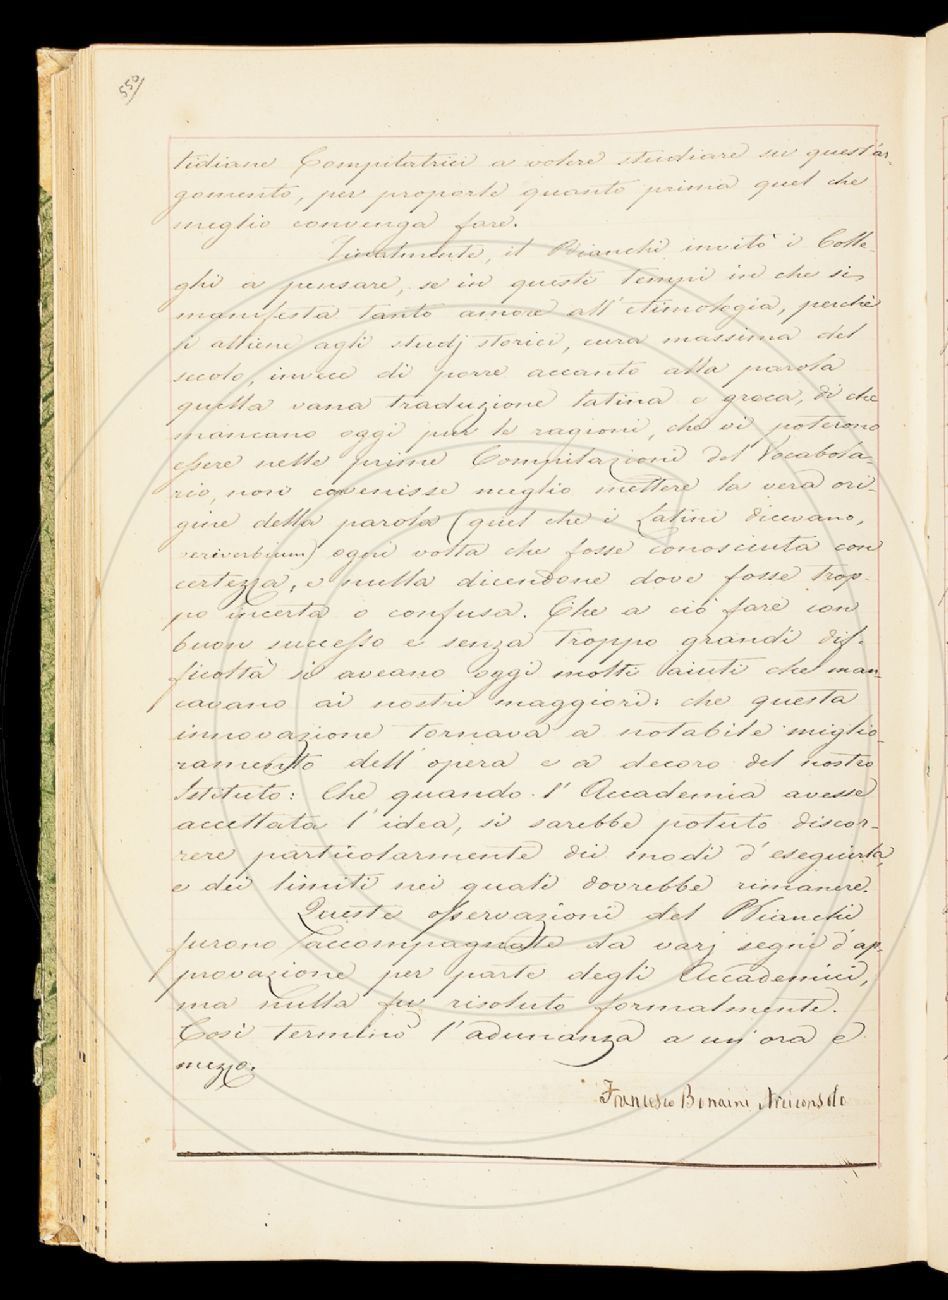 550
tidiane Compilatrici a volere studiare su quest'ar-
gomento, per proporle quanto prima quel che
meglio convenga fare.
Finalmente, il Bianchi invitò i Colle-
ghi a pensare, se in questi tempi in che si
manifesta tanto amore all'etimologia, perchè
si attiene agli studj storici, cura massima del
secolo, invece di porre accanto alla parola
quella vana traduzione latina e greca, di che
mancano oggi pur le ragioni, che vi poterono
essere nelle prime Compilazioni del Vocabola-
rio, non convenisse meglio mettere la vera ori-
gine della parola (quel che i Latini dicevano,
veriverbium) ogni volta che fosse conosciuta con
certezza, e nulla dicendone dove fosse trop-
po incerta o confusa. Che a ciò fare con
buon successo e senza troppo grandi dif-
ficoltà si aveano oggi molti aiuti che man-
cavano ai nostri maggiori: che questa
innovazione tornava a notabile miglio-
ramento dell'opera e a decoro del nostro
Istituto: Che quando l'Accademia avesse
accettata l'idea, si sarebbe potuto discor-
rere particolarmente dei modi d'eseguirla,
e dei limiti nei quali dovrebbe rimanere.
Queste osservazioni del Bianchi
furono accompagnate da varj segni d'ap-
provazione per parte degli Accademici,
ma nulla fu risoluto formalmente.
Così terminò l'adunanza a un'ora e
mezzo.
Francesco Bonaini Arciconsolo